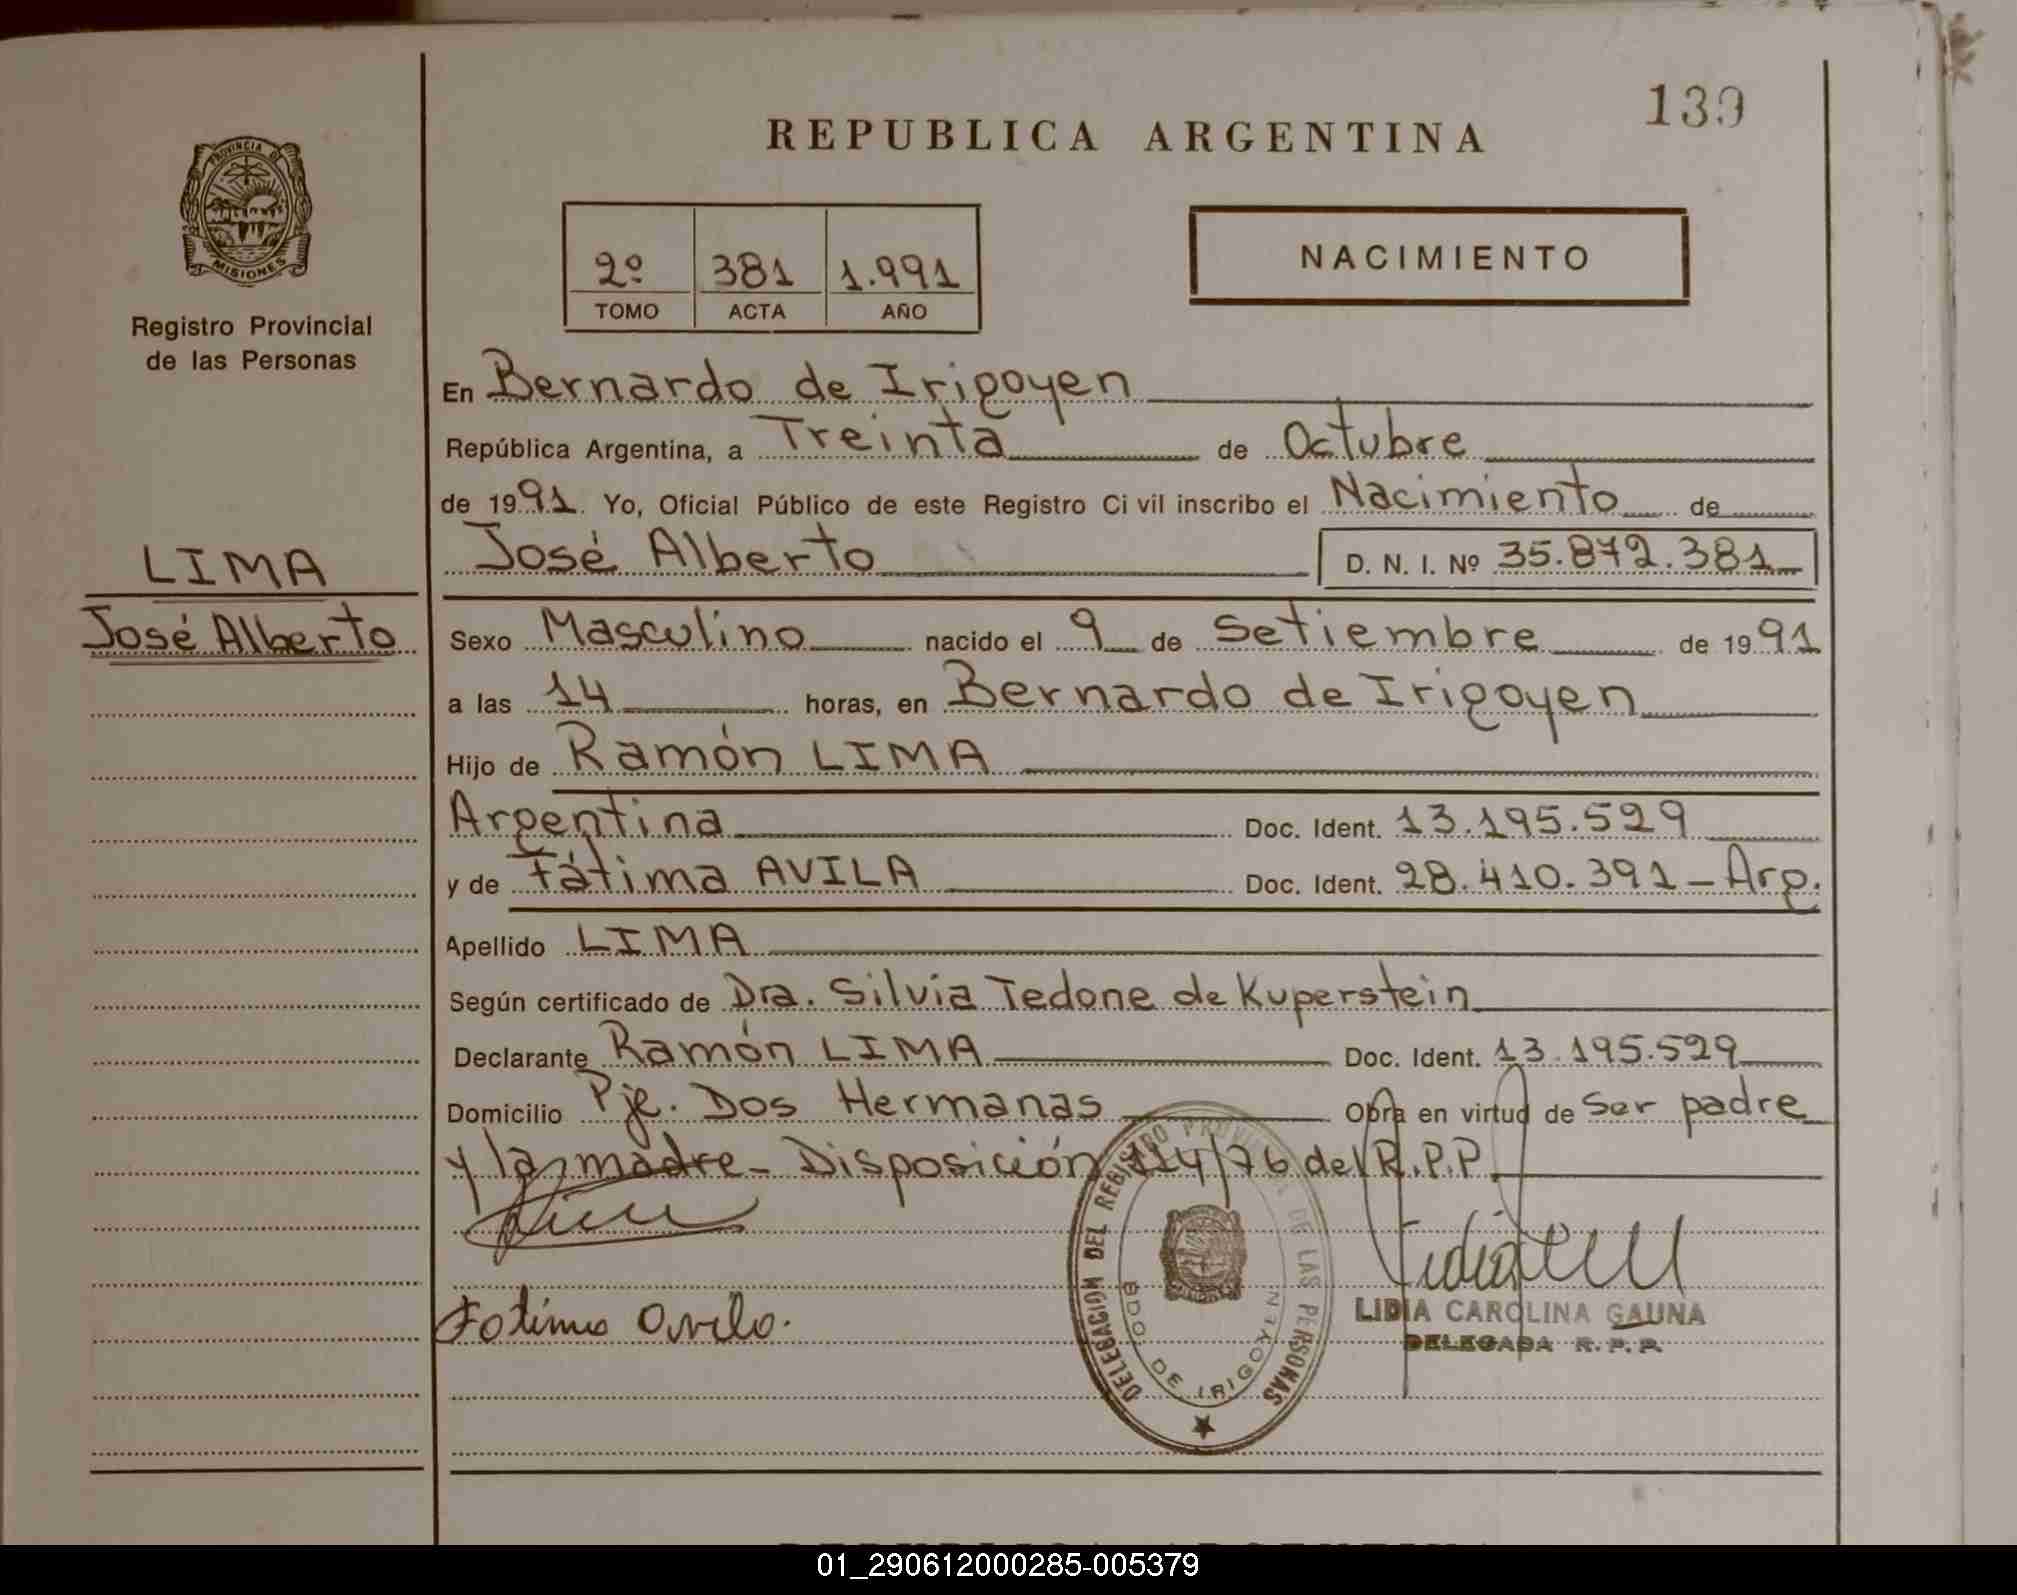 139
REPUBLICA ARGENTINA
PROVINCIA DE
MISIONES
Registro Provincial
de las Personas
2º 381 1.991
TOMO ACTA AÑO
NACIMIENTO
En Bernardo de Irigoyen
República Argentina, a Treinta de Octubre
de 1991. Yo, Oficial Público de este Registro Ci vil inscribo el Nacimiento de
José Alberto D. N. I. Nº 35.872.381
LIMA
José Alberto
Sexo Masculino nacido el 9 de Setiembre de 1991
a las 14 horas, en Bernardo de Irigoyen
Hijo de Ramón LIMA
Argentina Doc. Ident. 13.195.529
y de Fátima AVILA Doc. Ident. 28.410.391 - Arg.
Apellido LIMA
Según certificado de Dra. Silvia Tedone de Kuperstein
Declarante Ramón LIMA Doc. Ident. 13.195.529
Domicilio Pje. Dos Hermanas Obra en virtud de Ser padre
y la madre - Disposición 114/76 del R.P.P.
Fatima Avila.
DELEGACION DEL REGISTRO PROVINCIAL DE LAS PERSONAS
BDO. DE IRIGOYEN
LIDIA CAROLINA GAUNA
DELEGADA R. P. P.
01_290612000285-005379